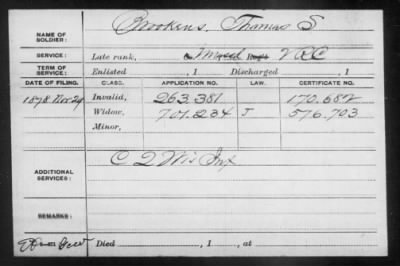 NAME OF SOLDIER: Brookens, Thomas S
SERVICE: Late rank, V R C
TERM OF SERVICE: Enlisted , 1 Discharged , 1
DATE OF FILING. CLASS. APPLICATION NO. LAW. CERTIFICATE NO.
1878 Nov 29 Invalid, 263.381 170.682
Widow, 701.234 J 576.703
Minor,
C 2 Wis Inf
ADDITIONAL SERVICES:
REMARKS:
Died , 1 , at